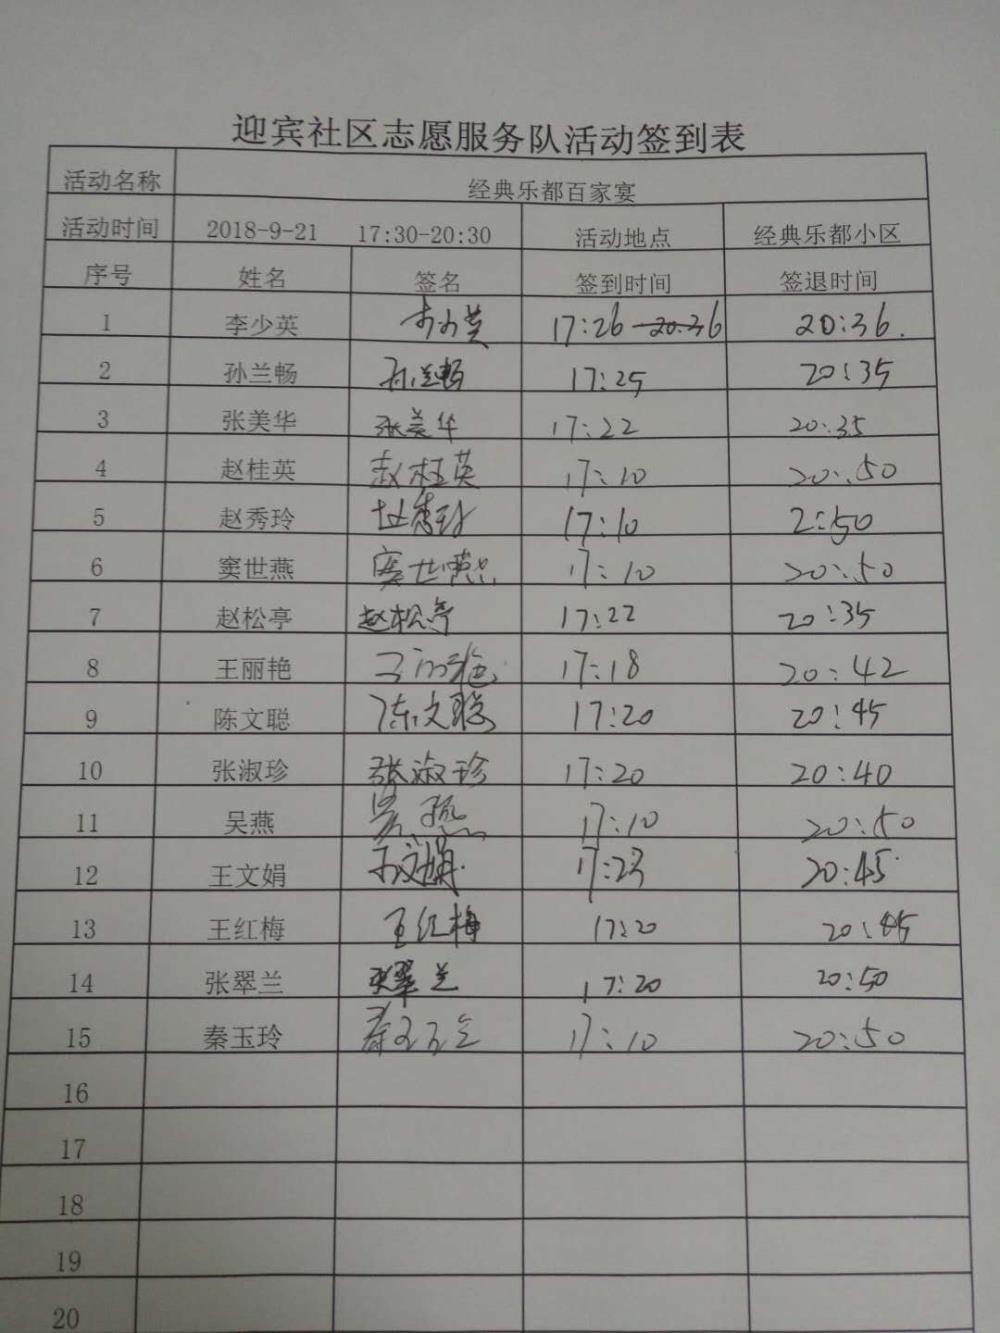 迎宾社区志愿服务队活动签到表
活动名称 经典乐都百家宴
活动时间 2018-9-21 17:30-20:30 活动地点 经典乐都小区
序号 姓名 签名 签到时间 签退时间
1 李少英 李少英 17:26 20:36 20:36.
2 孙兰畅 孙兰畅 17:25 20:35
3 张美华 张美华 17:22 20:35
4 赵桂英 赵桂英 17:10 20:50
5 赵秀玲 赵秀玲 17:10 2:50
6 窦世燕 窦世燕 17:10 20:50
7 赵松亭 赵松亭 17:22 20:35
8 王丽艳 王丽艳 17:18 20:42
9 陈文聪 陈文聪 17:20 20:45
10 张淑珍 张淑珍 17:20 20:40
11 吴燕 吴燕 17:10 20:50
12 王文娟 王文娟 17:23 20:45
13 王红梅 王红梅 17:20 20:45
14 张翠兰 张翠兰 17:20 20:50
15 秦玉玲 秦玉玲 17:10 20:50
16
17
18
19
20